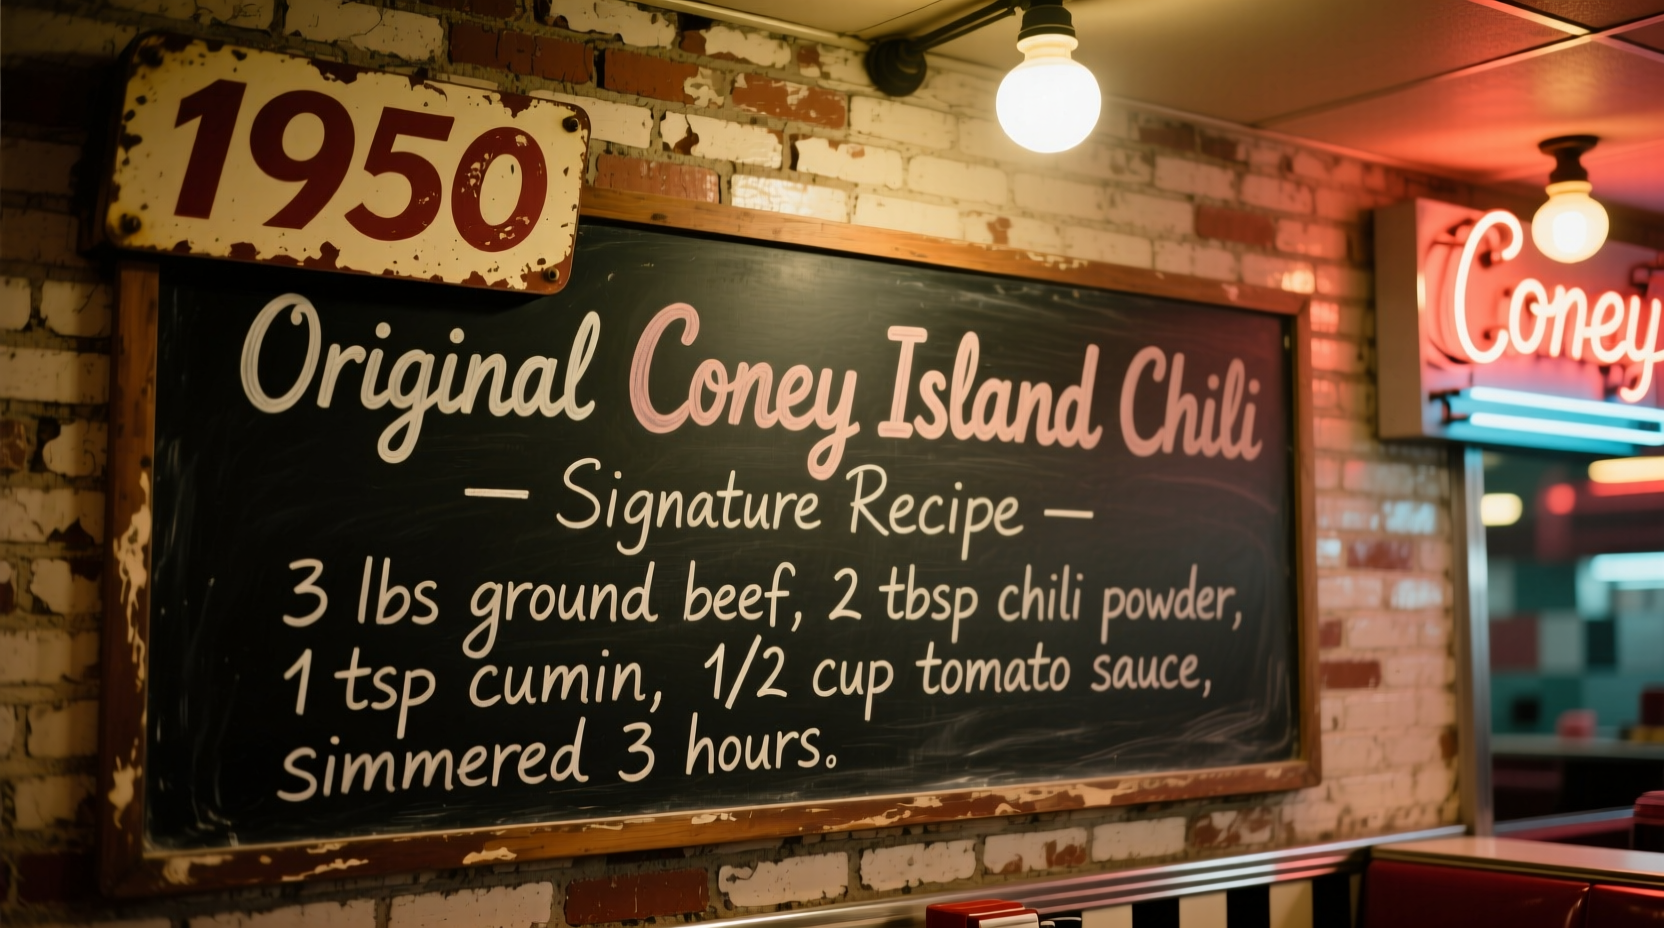 1950
Original Coney Island Chili
— Signature Recipe —
3 lbs ground beef, 2 tbsp chili powder,
1 tsp cumin, 1/2 cup tomato sauce,
simmered 3 hours.
Coney